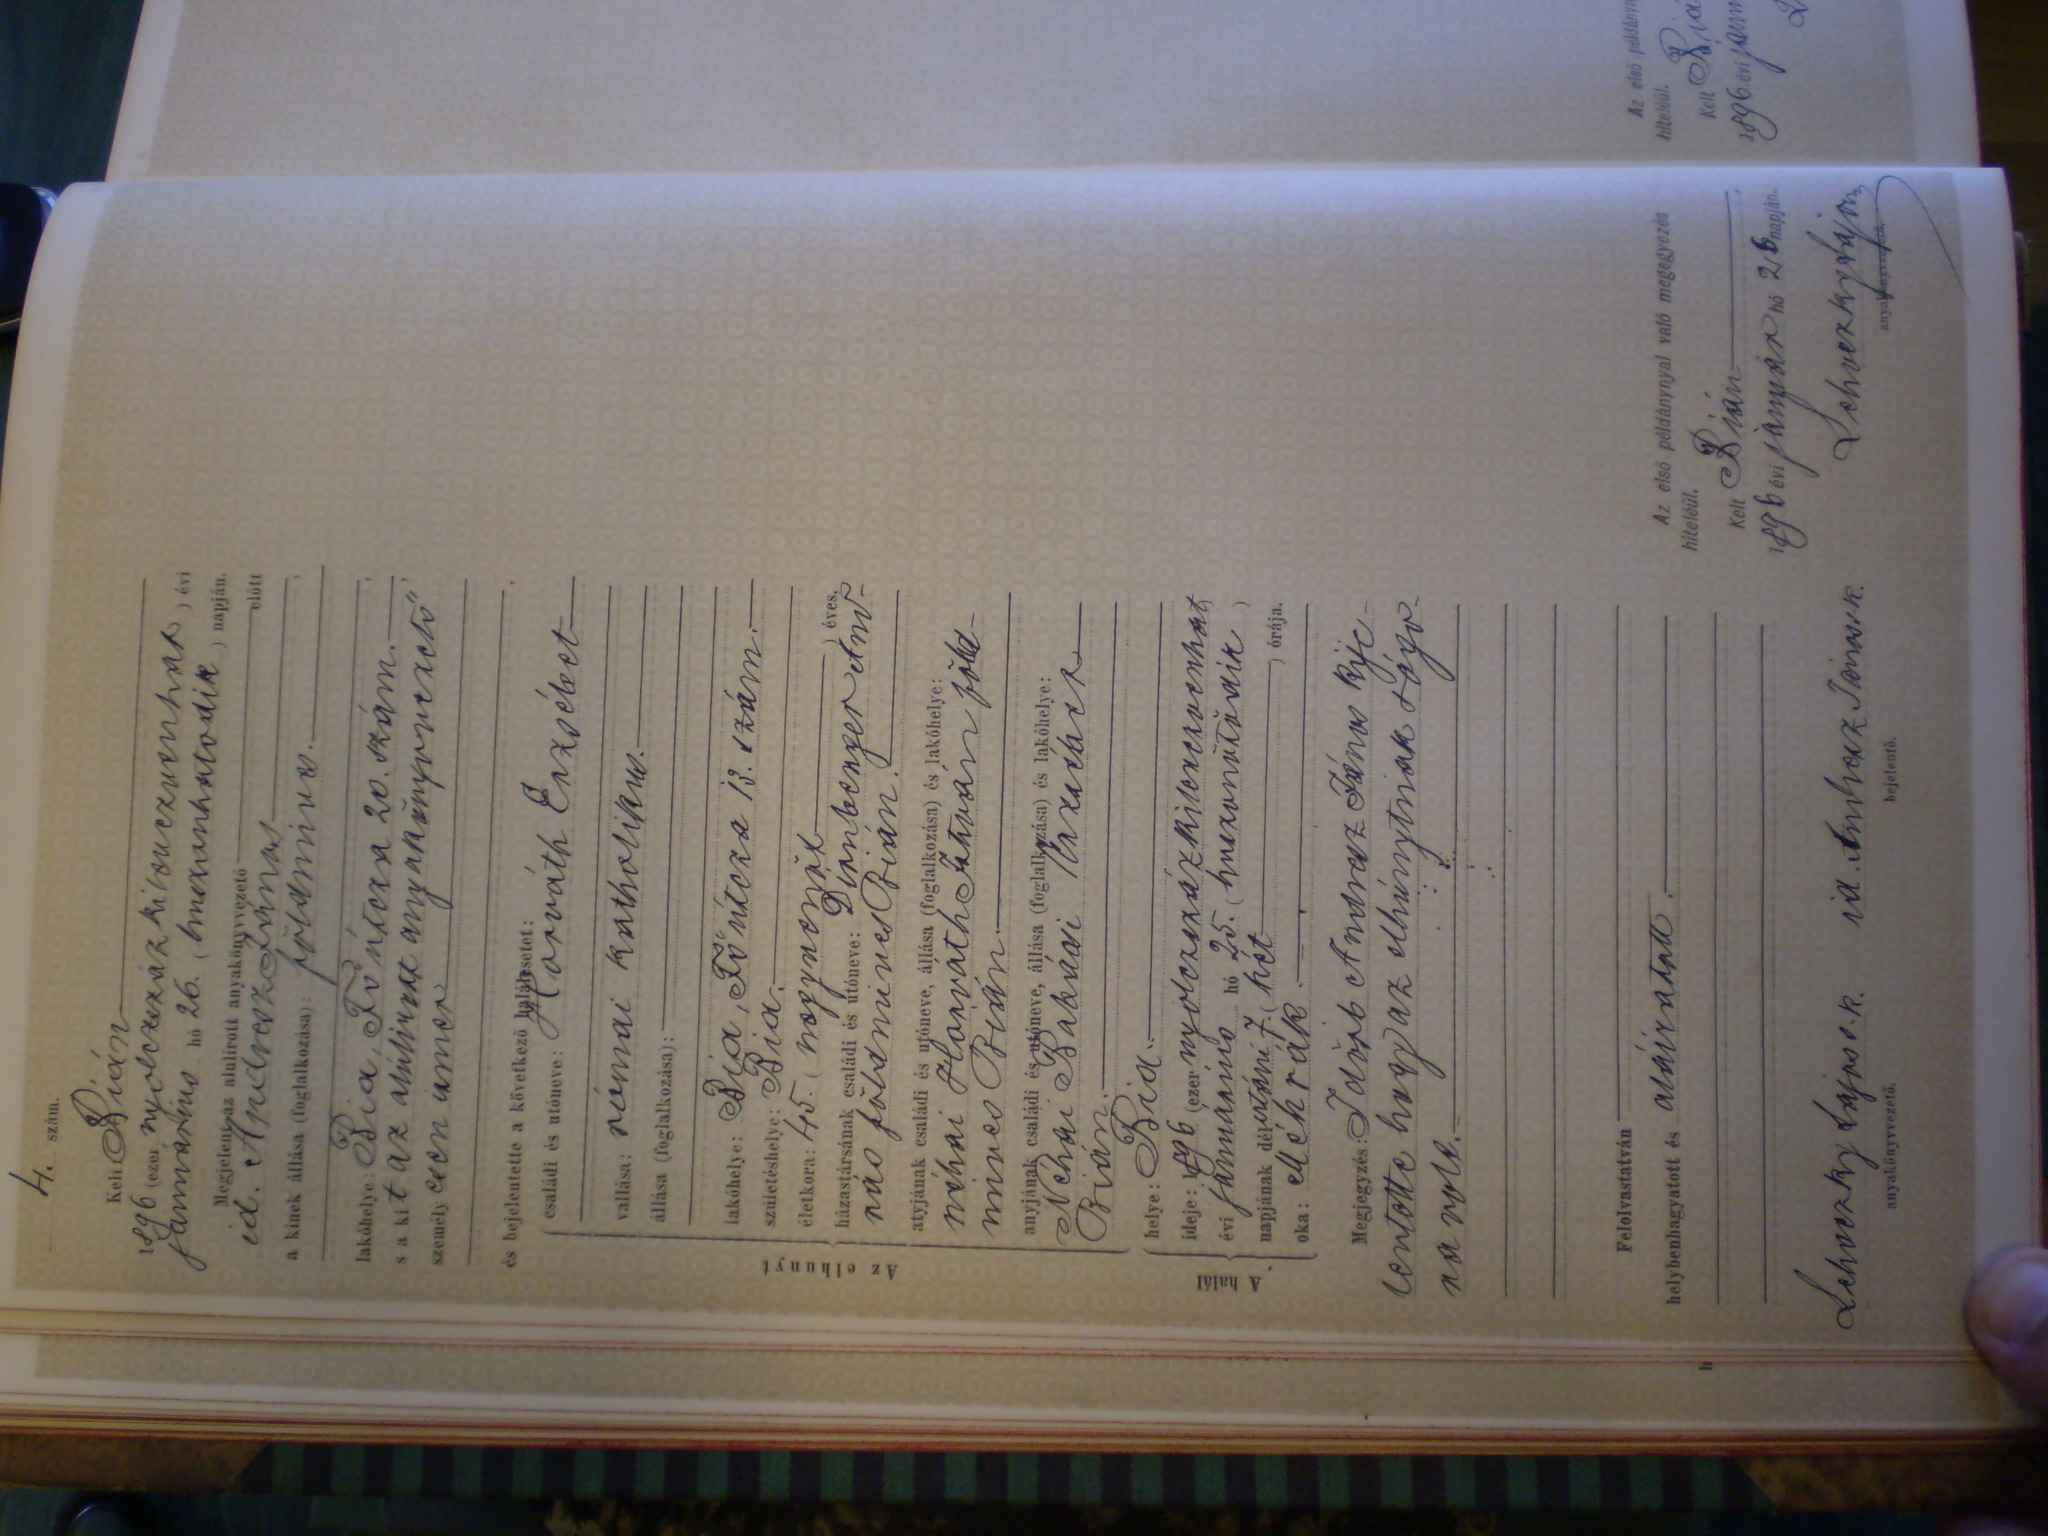 4. szám.
Kelt Bián
1896 (ezer nyolczszázkilenczvenhat) évi
januárius hó 26. (huszonhatodik) napján.
Megjelent az alulirott anyakönyvvezető előtt
id. Andresz János
a kinek állása (foglalkozása): földmives.
lakóhelye: Bia, Fő útcza 20. szám.
s a kit az alúlirott anyakönyvvezető
személyesen ismer
és bejelentette a következő halálesetet:
Az elhunyt
családi és utóneve: Horváth Erzsébet
vallása: római katholikus.
állása (foglalkozása):
lakóhelye: Bia, Fő útcza 13. szám.
születéshelye: Bia.
életkora: 45. (negyvenöt) éves,
házastársának családi és utóneve: Dirnberger And-
rás földmives Bián.
atyjának családi és utóneve, állása (foglalkozása) és lakóhelye:
néhai Horváth István föld-
mives Bián.
anyjának családi és utóneve, állása (foglalkozása) és lakóhelye:
Néhai Bakádi Erzsébet
Bián.
A halál
helye: Bia.
ideje: 1896 (ezer nyolczszázkilenczvenhat)
évi januárius hó 25. (huszonötödik)
napjának délutáni 7. (hét) órája.
oka: Méhrák.
Megjegyzés: Idősb Andresz János kije-
lentette hogy az elhúnytnak sógo-
ra volt.
Felolvastatván
helybenhagyatott és aláiratott.
Lehoczky Lajos s. k. id. Andresz János s. k.
anyakönyvvezető. bejelentő.
Az első példánnyal való megegyezés
hiteléül.
Kelt Bián
1896 évi január hó 26 napján.
Lehoczky Lajos
anyakönyvvezető.
Az első példánny
hiteléül.
Kelt Biá
1896. évi janu